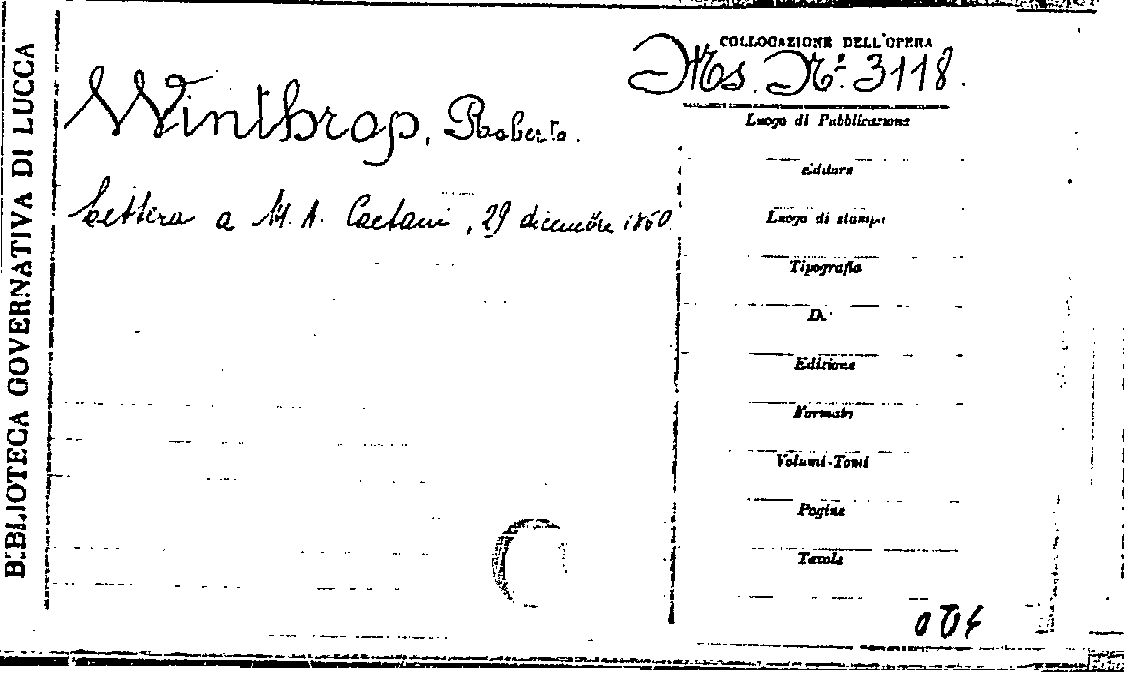 BIBLIOTECA GOVERNATIVA DI LUCCA
COLLOCAZIONE DELL'OPERA
Ms. Nº. 3118.
Winthrop, Roberto.
Lettera a M. A. Caetani, 29 dicembre 1860.
Luogo di Pubblicazione
Editore
Luogo di stampa
Tipografia
D.
Edizione
Formato
Volumi-Tomi
Pagine
Tavole